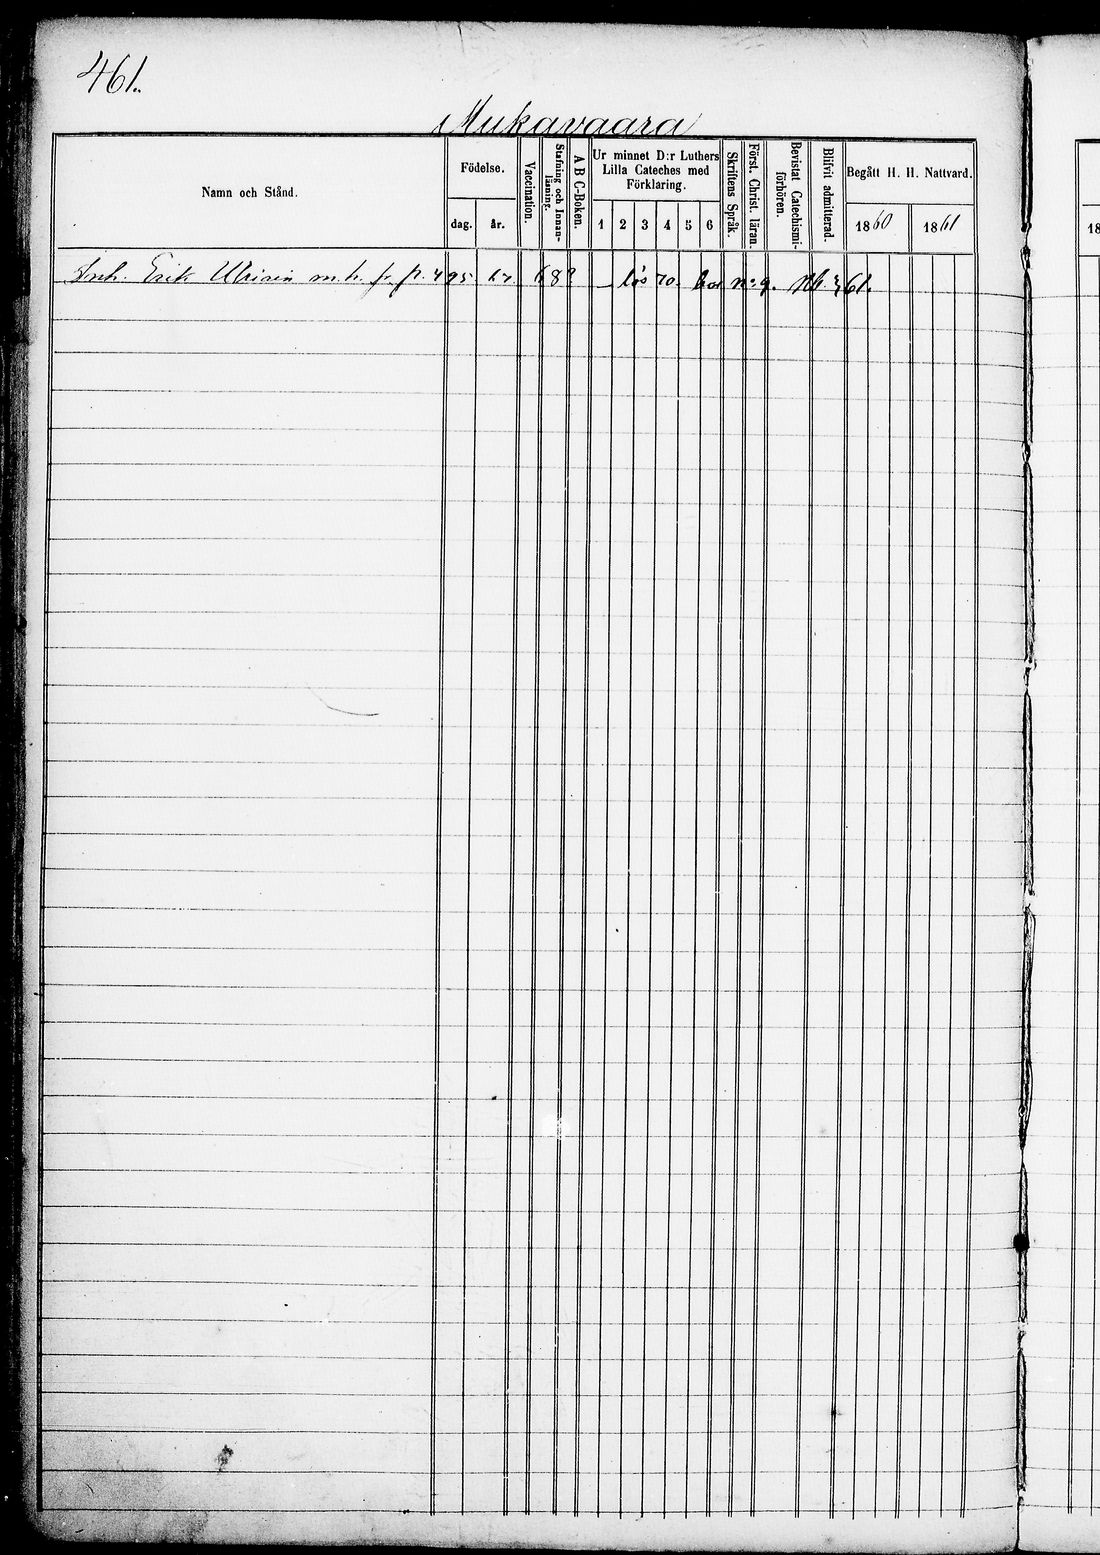 461.
Mukavaara
Namn och Stånd.
Födelse.
dag.
år.
Vaccination.
Stafning och Innanläsning.
A B C-Boken.
Ur minnet D:r Luthers
Lilla Cateches med
Förklaring.
1 2 3 4 5 6
Skriftens Språk.
Först. Christ. läran.
Bevistat Catechismi-
förhören.
Blifvit admitterad.
Begått H. H. Nattvard.
1860
1861
18
Inh. Erik m. h. fr. p. 495 68 61.